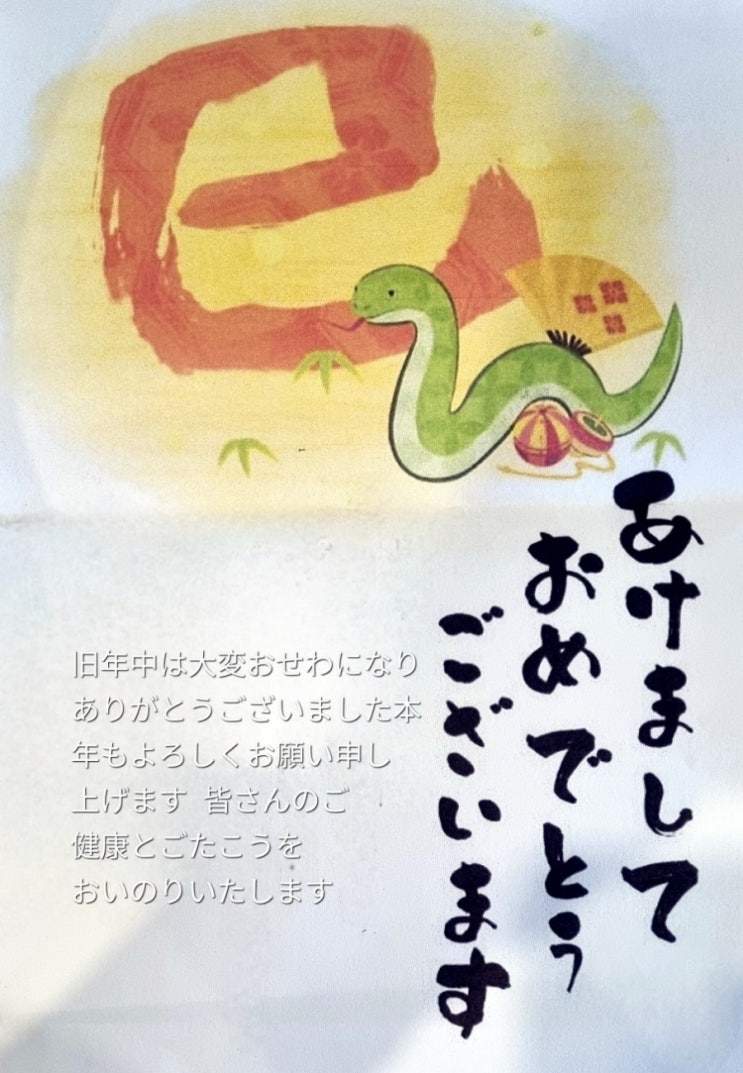 巳
あけまして
おめでとう
ございます
旧年中は大変おせわになり
ありがとうございました本
年もよろしくお願い申し
上げます 皆さんのご
健康とごたこうを
おいのりいたします